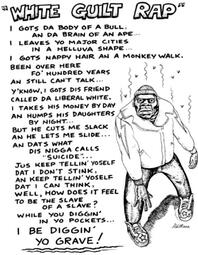 "WHITE GUILT RAP"
I GOTS DA BODY OF A BULL,
AN DA BRAIN OF AN APE...
I LEAVES YO MAJOR CITIES
IN A HELLUVA SHAPE...
I GOTS NAPPY HAIR AN A MONKEY WALK.
BEEN OVER HERE
FO' HUNDRED YEARS
AN STILL CAN'T TALK...
Y'KNOW, I GOTS DIS FRIEND
CALLED DA LIBERAL WHITE.
I TAKES HIS MONEY BY DAY
AN HUMPS HIS DAUGHTERS
BY NIGHT...
BUT HE CUTS ME SLACK
AN HE LETS ME SLIDE...
AN DATS WHAT
DIS NIGGA CALLS
"SUICIDE"...
JUS KEEP TELLIN' YOSELF
DAT I DON'T STINK,
AN KEEP TELLIN' YOSELF
DAT I CAN THINK,
WELL, HOW DOES IT FEEL
TO BE THE SLAVE
OF A SLAVE?
WHILE YOU DIGGIN'
IN YO POCKETS...
I BE DIGGIN'
YO GRAVE!